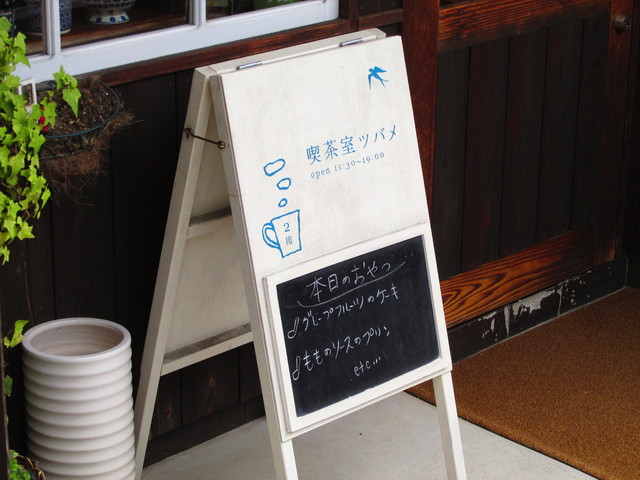 喫茶室ツバメ
open 11:30~19:00
2
階
本日のおやつ
♪グレープフルーツのケーキ
♪もものソースのプリン
etc...